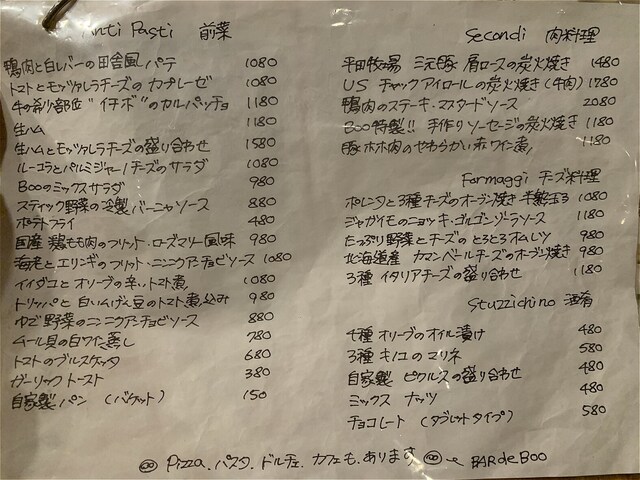 Anti Pasti 前菜
鴨肉と白レバーの田舎風パテ 1080
トマトとモッツァレラチーズの カプレーゼ 1080
牛の希少部位"イチボ"のカルパッチョ 1180
生ハム 1180
生ハムとモッツァレラチーズの盛り合わせ 1580
ルーコラとパルミジャーノチーズのサラダ 1080
Booのミックスサラダ 980
スティック野菜の冷製バーニャソース 880
ポテトフライ 480
国産 鶏もも肉のフリット・ローズマリー風味 980
海老とエリンギのフリット・ニンニクアンチョビソース 1080
イイダコとオリーブの辛いトマト煮 1080
トリッパと白いんげん豆のトマト煮込み 980
ゆで野菜のニンニクアンチョビソース 880
ムール貝の白ワイン蒸し 780
トマトのブルスケッタ 680
ガーリックトースト 380
自家製パン (バケット) 150
Secondi 肉料理
平田牧場 三元豚 肩ロースの炭火焼き 1480
US チャックアイロールの炭火焼き(牛肉) 1780
鴨肉のステーキ・マスタードソース 2080
Boo特製!! 手作りソーセージの炭火焼き 1180
豚ホホ肉のやわらか赤ワイン煮 1180
Formaggi チーズ料理
ポレンタと3種チーズのオーブン焼き 半熟玉子 1080
ジャガイモのニョッキ・ゴルゴンゾーラソース 1180
たっぷり野菜とチーズのとろとろオムレツ 980
北海道産 カマンベールチーズのオーブン焼き 980
3種 イタリアチーズの盛り合わせ 1180
Stuzzichino 酒肴
4種 オリーブのオイル漬け 480
3種 キノコのマリネ 580
自家製 ピクルスの盛り合わせ 480
ミックス ナッツ 480
チョコレート (タブレットタイプ) 580
Pizza、パスタ、ドルチェ、カフェも、あります BARdeBOO